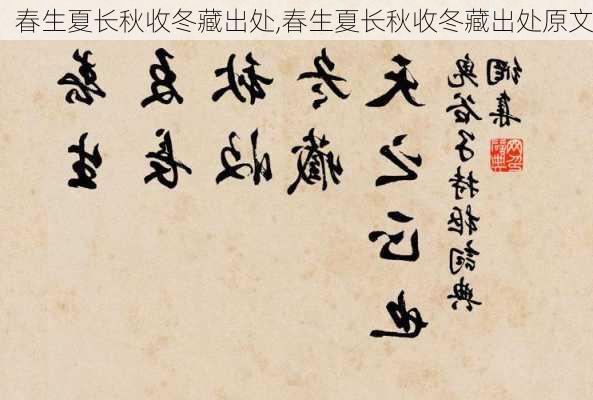 春生夏长秋收冬藏出处,春生夏长秋收冬藏出处原文
春生
夏長
秋收
冬藏
天之正也
鬼谷子持樞詞典
網集